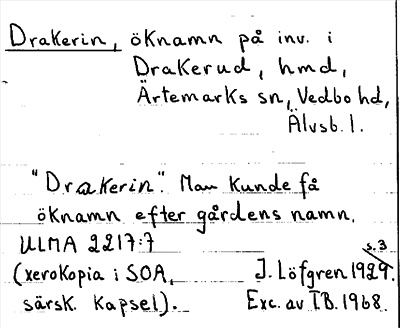 Drakerin, öknamn på inv. i
Drakerud, hmd,
Ärtemarks sn, Vedbo hd,
Älvsb. l.
"Drakerin". Man kunde få
öknamn efter gårdens namn.
ULMA 2217:7 s. 3
(xerokopia i SOA, J. Löfgren 1929.
särsk. kapsel). Exc. av IB. 1968.